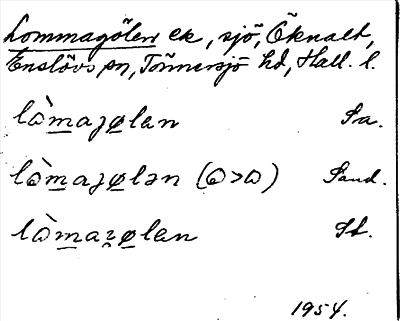 Lommagölen ek, sjö, Öknalt,
Enslövs sn, Tönnersjö hd, Hall. l.
lò̀maȷølan Sa.
lò̀maȷølən (ω>ɷ) Sand.
lò̀maʐølan St.
1954.